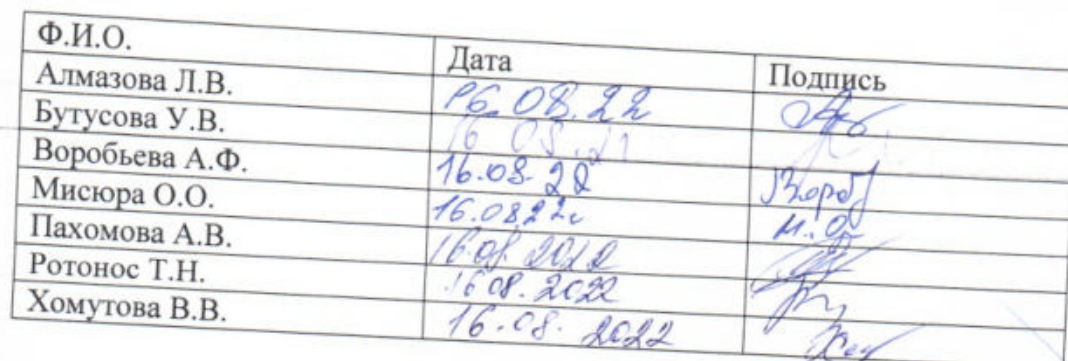 Ф.И.О. Дата Подпись
Алмазова Л.В. 16.08.22
Бутусова У.В. 16 08.21
Воробьева А.Ф. 16.08.22 Вороб
Мисюра О.О. 16.0822г М.О.
Пахомова А.В. 16.08.2022
Ротонос Т.Н. 16 08.2022
Хомутова В.В. 16.08.2022 Хом